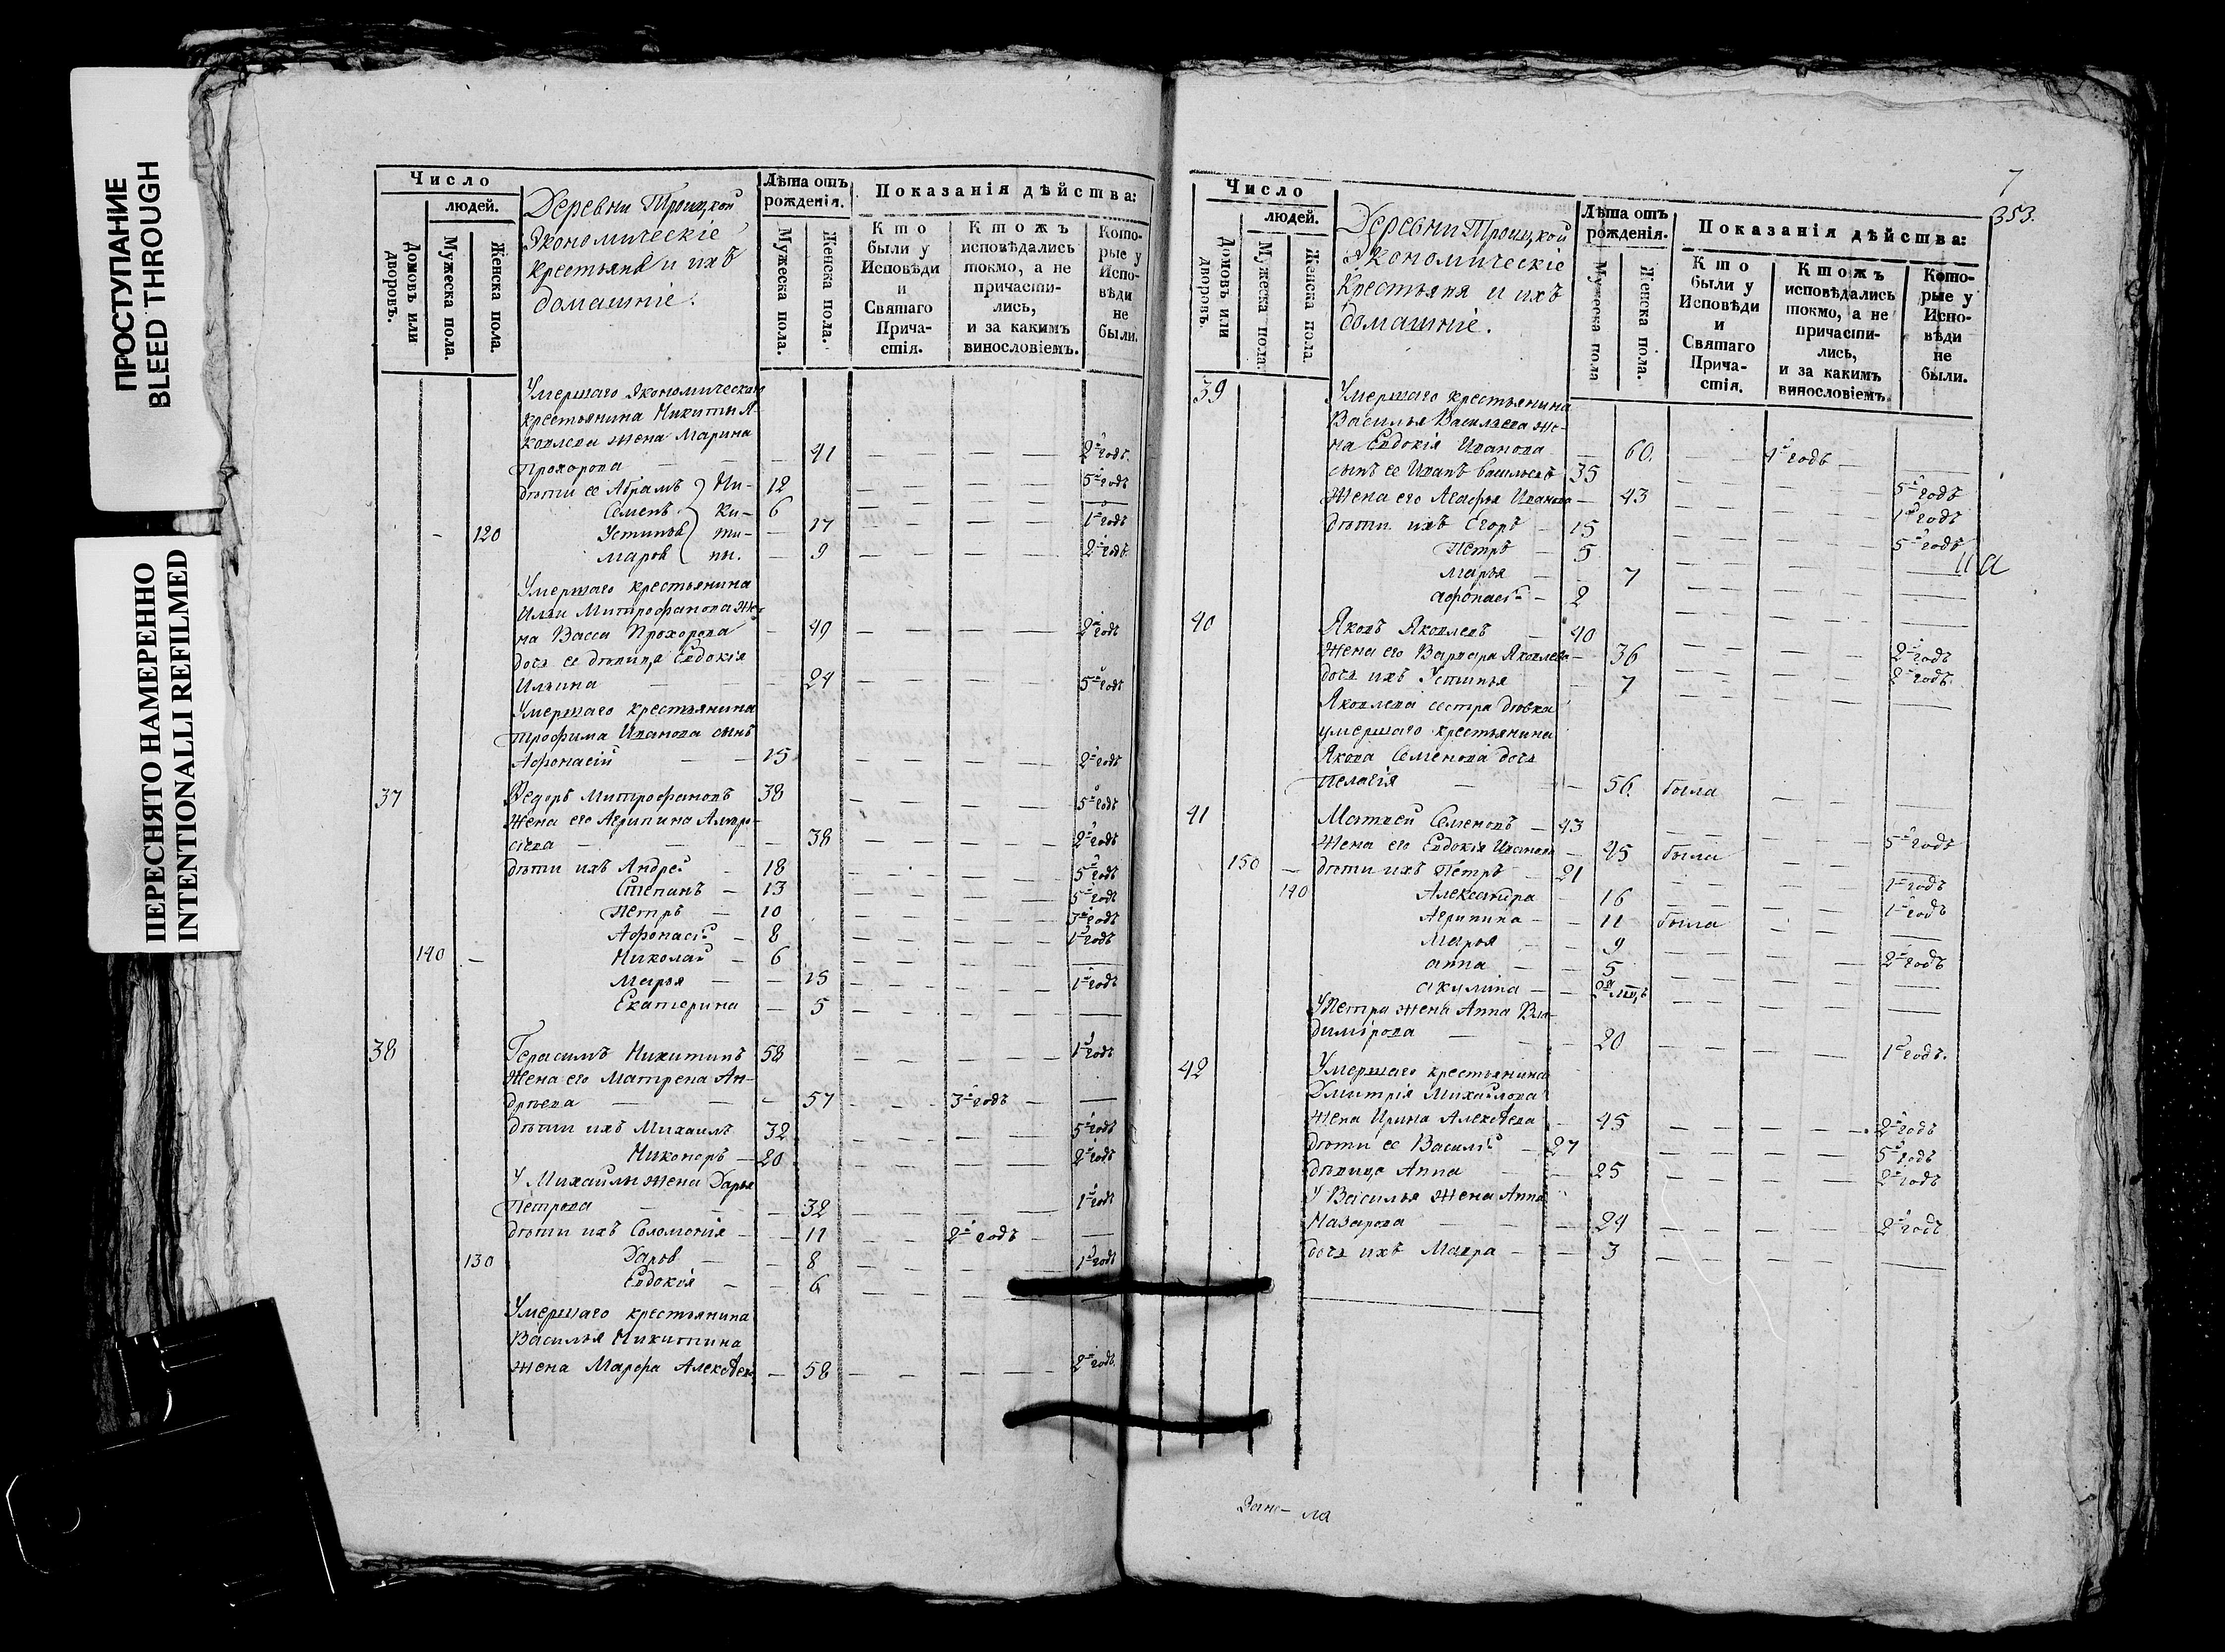 ПРОСТУПАНИЕ
BLEED THROUGH
ПЕРЕСНЯТО НАМЕРЕННО
INTENTIONALLI REFILMED
Число
людей.
Домовъ или дворовъ.
Мужеска пола.
Женска пола.
Деревни Троицкой
Экономическіе
крестьяна и ихъ
домашніе.
Лѣта отъ рожденія.
Мужеска пола.
Женска пола.
Показанія дѣйства:
Кто были у Исповѣди и Святаго Причастія.
Ктожъ исповѣдались токмо, а не причастились, и за какимъ винословіемъ.
Которые у Исповѣди не были.
Умершаго Экономическаго
крестьянина Никиты Я-
ковлева жена Марина
Прохорова — — 41 — — — — 2й годъ.
дѣти ее Абрамъ Ни- 12 — — — — 5й годъ
Семенъ ки- 6 — — — —
- 120 Устинья ти- — 17 — — — — 1й годъ
Марѳа ны. — 9 — — — — 2й годъ.
Умершаго крестьянина
Ильи Митрофанова же-
на Васса Прохорова — 49 — — — — 2й годъ
дочь ее дѣвица Евдокія
Ильина — — 24 — — — — 5й годъ
Умершаго крестьянина
Трофима Иванова сынъ
Афонасій — — 15 — — — — 2й годъ
37 Федоръ Митрофановъ 38 — — — — 5й годъ
Жена его Агрипина Амвро-
сіева — — — 38 — — — — 2й годъ
дѣти ихъ Андрей — 18 — — — — 5й годъ
Степанъ — 13 — — — — 5й годъ
Петръ — 10 — — — — 3й годъ
Афонасій — 8 — — — — 1й годъ
140 — Николай — 6 — — — —
Марья — — 15 — — — — 1й годъ
Екатерина — 5 — — — —
38 Герасимъ Никитинъ 58 — — — — 1й годъ
Жена его Матрена Ан-
дреева — — — 57 - - - 3й годъ — —
дѣти ихъ Михаилъ 32 — — — — 5й годъ
Никоноръ — 20 — — — — 2й годъ
У Михайлы жена Дарья
Петрова — — — 32 — — — — 1й годъ
дѣти ихъ Соломонія — — 11 — — 2й годъ —
130 Дарья — — 8 — — — — 1й годъ
Евдокія — — 6 — — — —
Умершаго крестьянина
Василья Никитина
жена Марфа Алексѣева — 58 — — — — 2й годъ.
7
353.
Число
людей.
Домовъ или дворовъ.
Мужеска пола.
Женска пола.
Деревни Троицкой
Экономическіе
Крестьяня и ихъ
домашніе.
Лѣта отъ рожденія.
Мужеска пола
Женска пола.
Показанія дѣйства:
Кто были у Исповѣди и Святаго Причастія.
Ктожъ исповѣдались токмо, а не причастились, и за какимъ винословіемъ.
Которые у Исповѣди не были.
39 Умершаго крестьянина
Василья Васильева же-
на Евдокія Иванова — 60. — — 4й годъ — —
сынъ ее Иванъ Васильевъ 35 — — — — 5й годъ
Жена его Агафья Иванова — 43 — — — — 1й годъ
дѣти ихъ Егоръ — 15 — — — — 5й годъ
Петръ — 5 — — — —
Марья — — 7 — — — —
Афонасій — 2 — — — —
40 Яковъ Яковлевъ — 40 — — — — 2й годъ
Жена его Варвара Яковлева — 36 — — — — 2й годъ.
дочь ихъ Устинья — 7 — — — —
Яковлева сестра дѣвка
умершаго крестьянина
Якова Семенова дочь
Пелагія — — 56. была — — —
41 Матвей Семеновъ — 43 — — — — 5й годъ
Жена его Евдокія Иванова — 45 была — — —
150 — дѣти ихъ Петръ — 21 — — — — 1й годъ
140 Александра — 16 — — — — 1й годъ
Агрипина — — 11 была — — —
Марья — — 9 — — — — 2й годъ
Анна — — 5 — — — —
Акулина — — — — — —
У Петра жена Анна Вла-
димірова — — 20 — — — — 1й годъ.
42 Умершаго крестьянина
Дмитрія Михайлова
Жена Ирина Алексѣева — 45 — — — — 2й годъ
дѣти ее Василій — 27 — — — — 5й годъ
дѣвица Анна — 25 — — — — 2й годъ
У Василья жена Анна
Назарова — — 24 — — — — 2й годъ
дочь ихъ Мавра — — 3 — — — —
ла